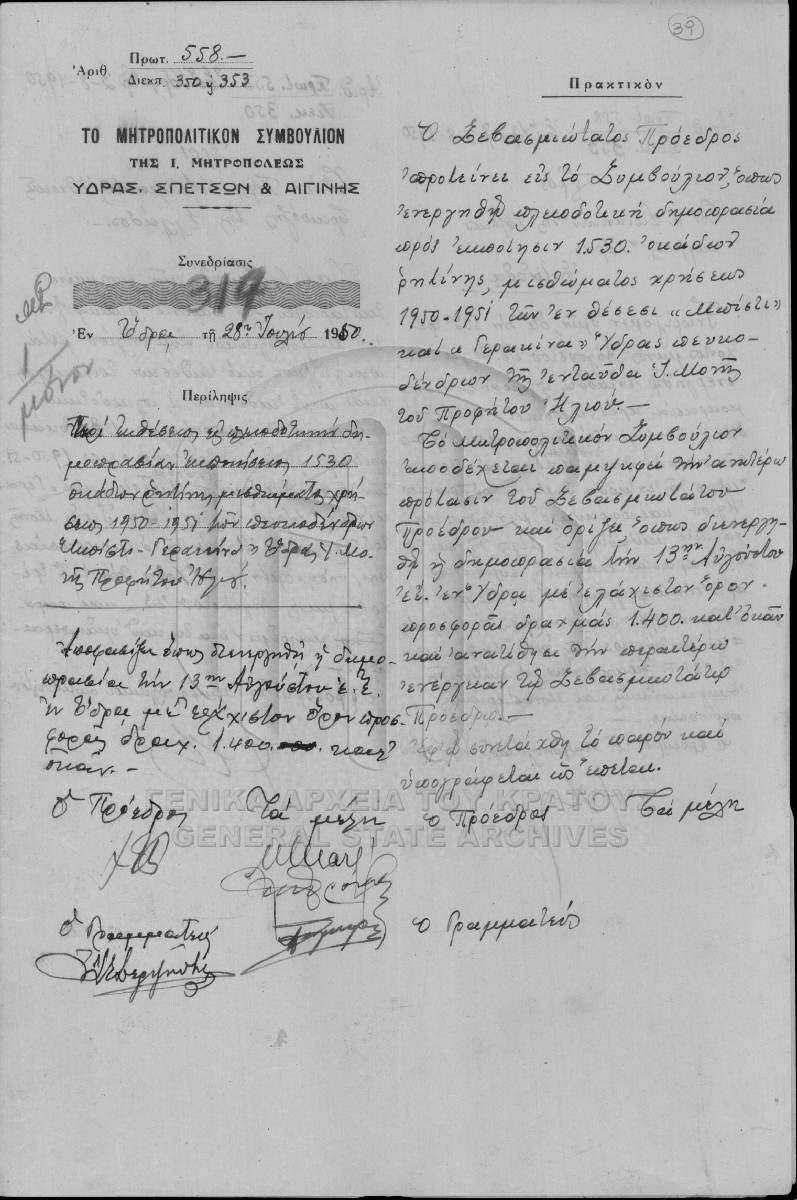 39
Ἀριθ. Πρωτ. 558.—
Διεκπ. 350 ή 353
ΤΟ ΜΗΤΡΟΠΟΛΙΤΙΚΟΝ ΣΥΜΒΟΥΛΙΟΝ
ΤΗΣ Ι. ΜΗΤΡΟΠΟΛΕΩΣ
ΥΔΡΑΣ, ΣΠΕΤΣΩΝ & ΑΙΓΙΝΗΣ
Συνεδρίασις
319
Ἐν Ὕδρᾳ τῇ 28ῃ Ἰουλίου 1950.
1
μόνον
Περίληψις
Περὶ ἐκθέσεως εἰς πλειοδοτικὴν δη-
μοπρασίαν ἐκποιήσεως 1530
ὀκάδων ρητίνης μισθώματος χρή-
σεως 1950-1951 τῶν πευκοδένδρων
Μπίστι - Γερακίνα" Ὕδρας Ἱ. Μο-
νῆς Προφήτου Ἠλιού.
Ἀποφασίζει ὅπως διενεργηθῇ ἡ δημο-
πρασία τὴν 13ην Αὐγούστου ἐ. ἔ.
ἐν Ὕδρᾳ μὲ ἐλάχιστον ὅρον προσ-
φορᾶς δραχ. 1.400. κατ'
ὀκᾶν.—
Ὁ Πρόεδρος Τὰ μέλη
Ὁ Γραμματεύς
Πρακτικὸν
Ὁ Σεβασμιώτατος Πρόεδρος
προτείνει εἰς τὸ Συμβούλιον, ὅπως
ἐνεργηθῇ πλειοδοτικὴ δημοπρασία
πρὸς ἐκποίησιν 1.530. ὀκάδων
ρητίνης, μισθώματος χρήσεως
1950-1951 τῶν ἐν θέσεσι «Μπίστι»
καὶ «Γερακίνα» Ὕδρας πευκο-
δένδρων τῆς ἐνταῦθα Ἱ. Μονῆς
τοῦ Προφήτου Ἠλιού.—
Τὸ Μητροπολιτικὸν Συμβούλιον
ἀποδέχεται παμψηφεὶ τὴν ἀνωτέρω
πρότασιν τοῦ Σεβασμιωτάτου
Προέδρου καὶ ὁρίζει ὅπως διενεργη-
θῇ ἡ δημοπρασία τὴν 13ην Αὐγούστου
ἐ.ἔ. ἐν Ὕδρᾳ μὲ ἐλάχιστον ὅρον
προσφορᾶς δραχμὰς 1.400. κατ' ὀκᾶν
καὶ ἀνατίθησι τὴν περαιτέρω
ἐνέργειαν τῷ Σεβασμιωτάτῳ
Προέδρῳ.—
Ἐφ' ᾧ συνετάχθη τὸ παρὸν καὶ
ὑπογράφεται ὡς ἕπεται.
Ὁ Πρόεδρος Τὰ μέλη
Ὁ Γραμματεύς
ΓΕΝΙΚΑ ΑΡΧΕΙΑ ΤΟΥ ΚΡΑΤΟΥΣ
GENERAL STATE ARCHIVES